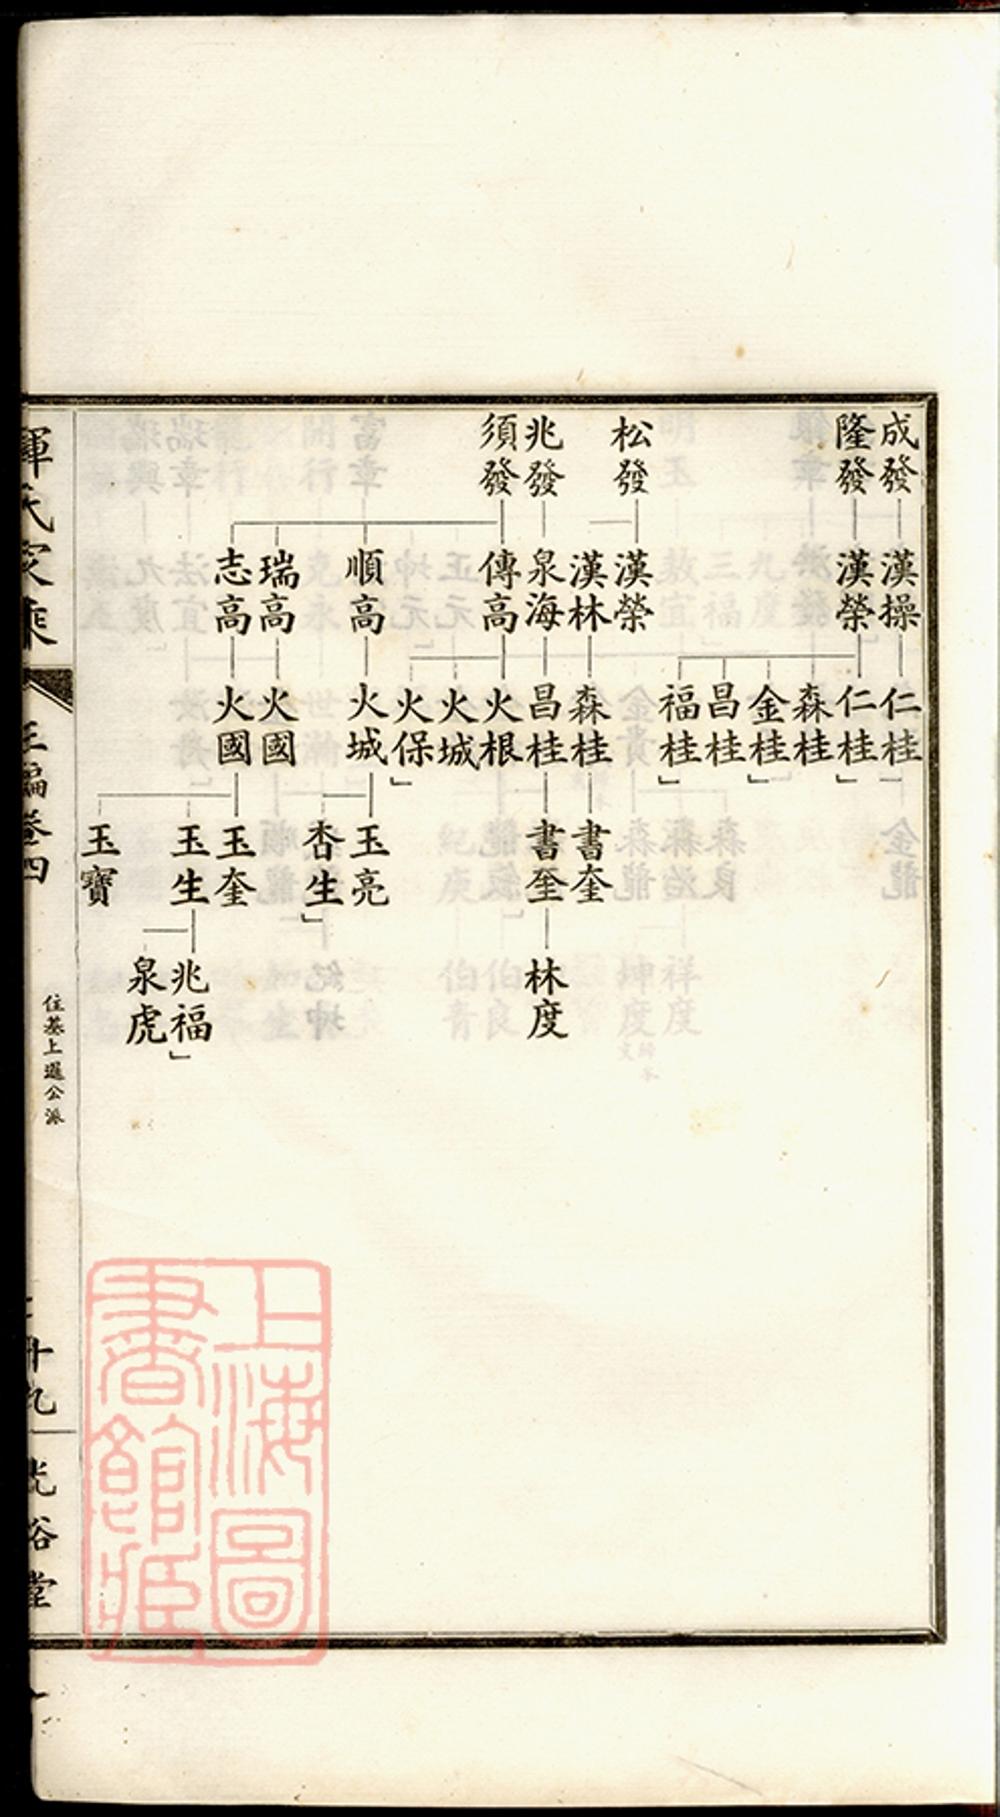 成發 隆發 松發 兆發 須發
漢操 漢榮 漢榮 漢林 泉海 傳高 順高 瑞高 志高
仁桂 仁桂 森桂 金桂 昌桂 福桂 森桂 昌桂 火根 火城 火保 火城 火國 火國
書奎 書奎 玉亮 杏生 玉奎 玉生 玉寶
林度 兆福 泉虎
惲氏家乘
正編卷四
住墓上暹公派
光裕堂
上海圖
書館藏